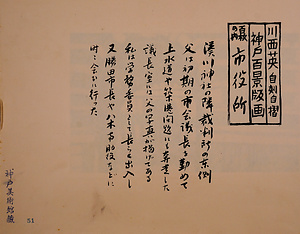 川西英 自刻自摺
神戸百景版画
百景の内
市役所
湊川神社の隣裁判所の東側
父は初期の市会議長を勤めて
上水道や築港問題にも奔走した
議長室には父の写真が掲げてある
私は学務委員として長らく出入し
又勝田市長や八木助役などに
時々会ひに行った
神戸美術館蔵
51